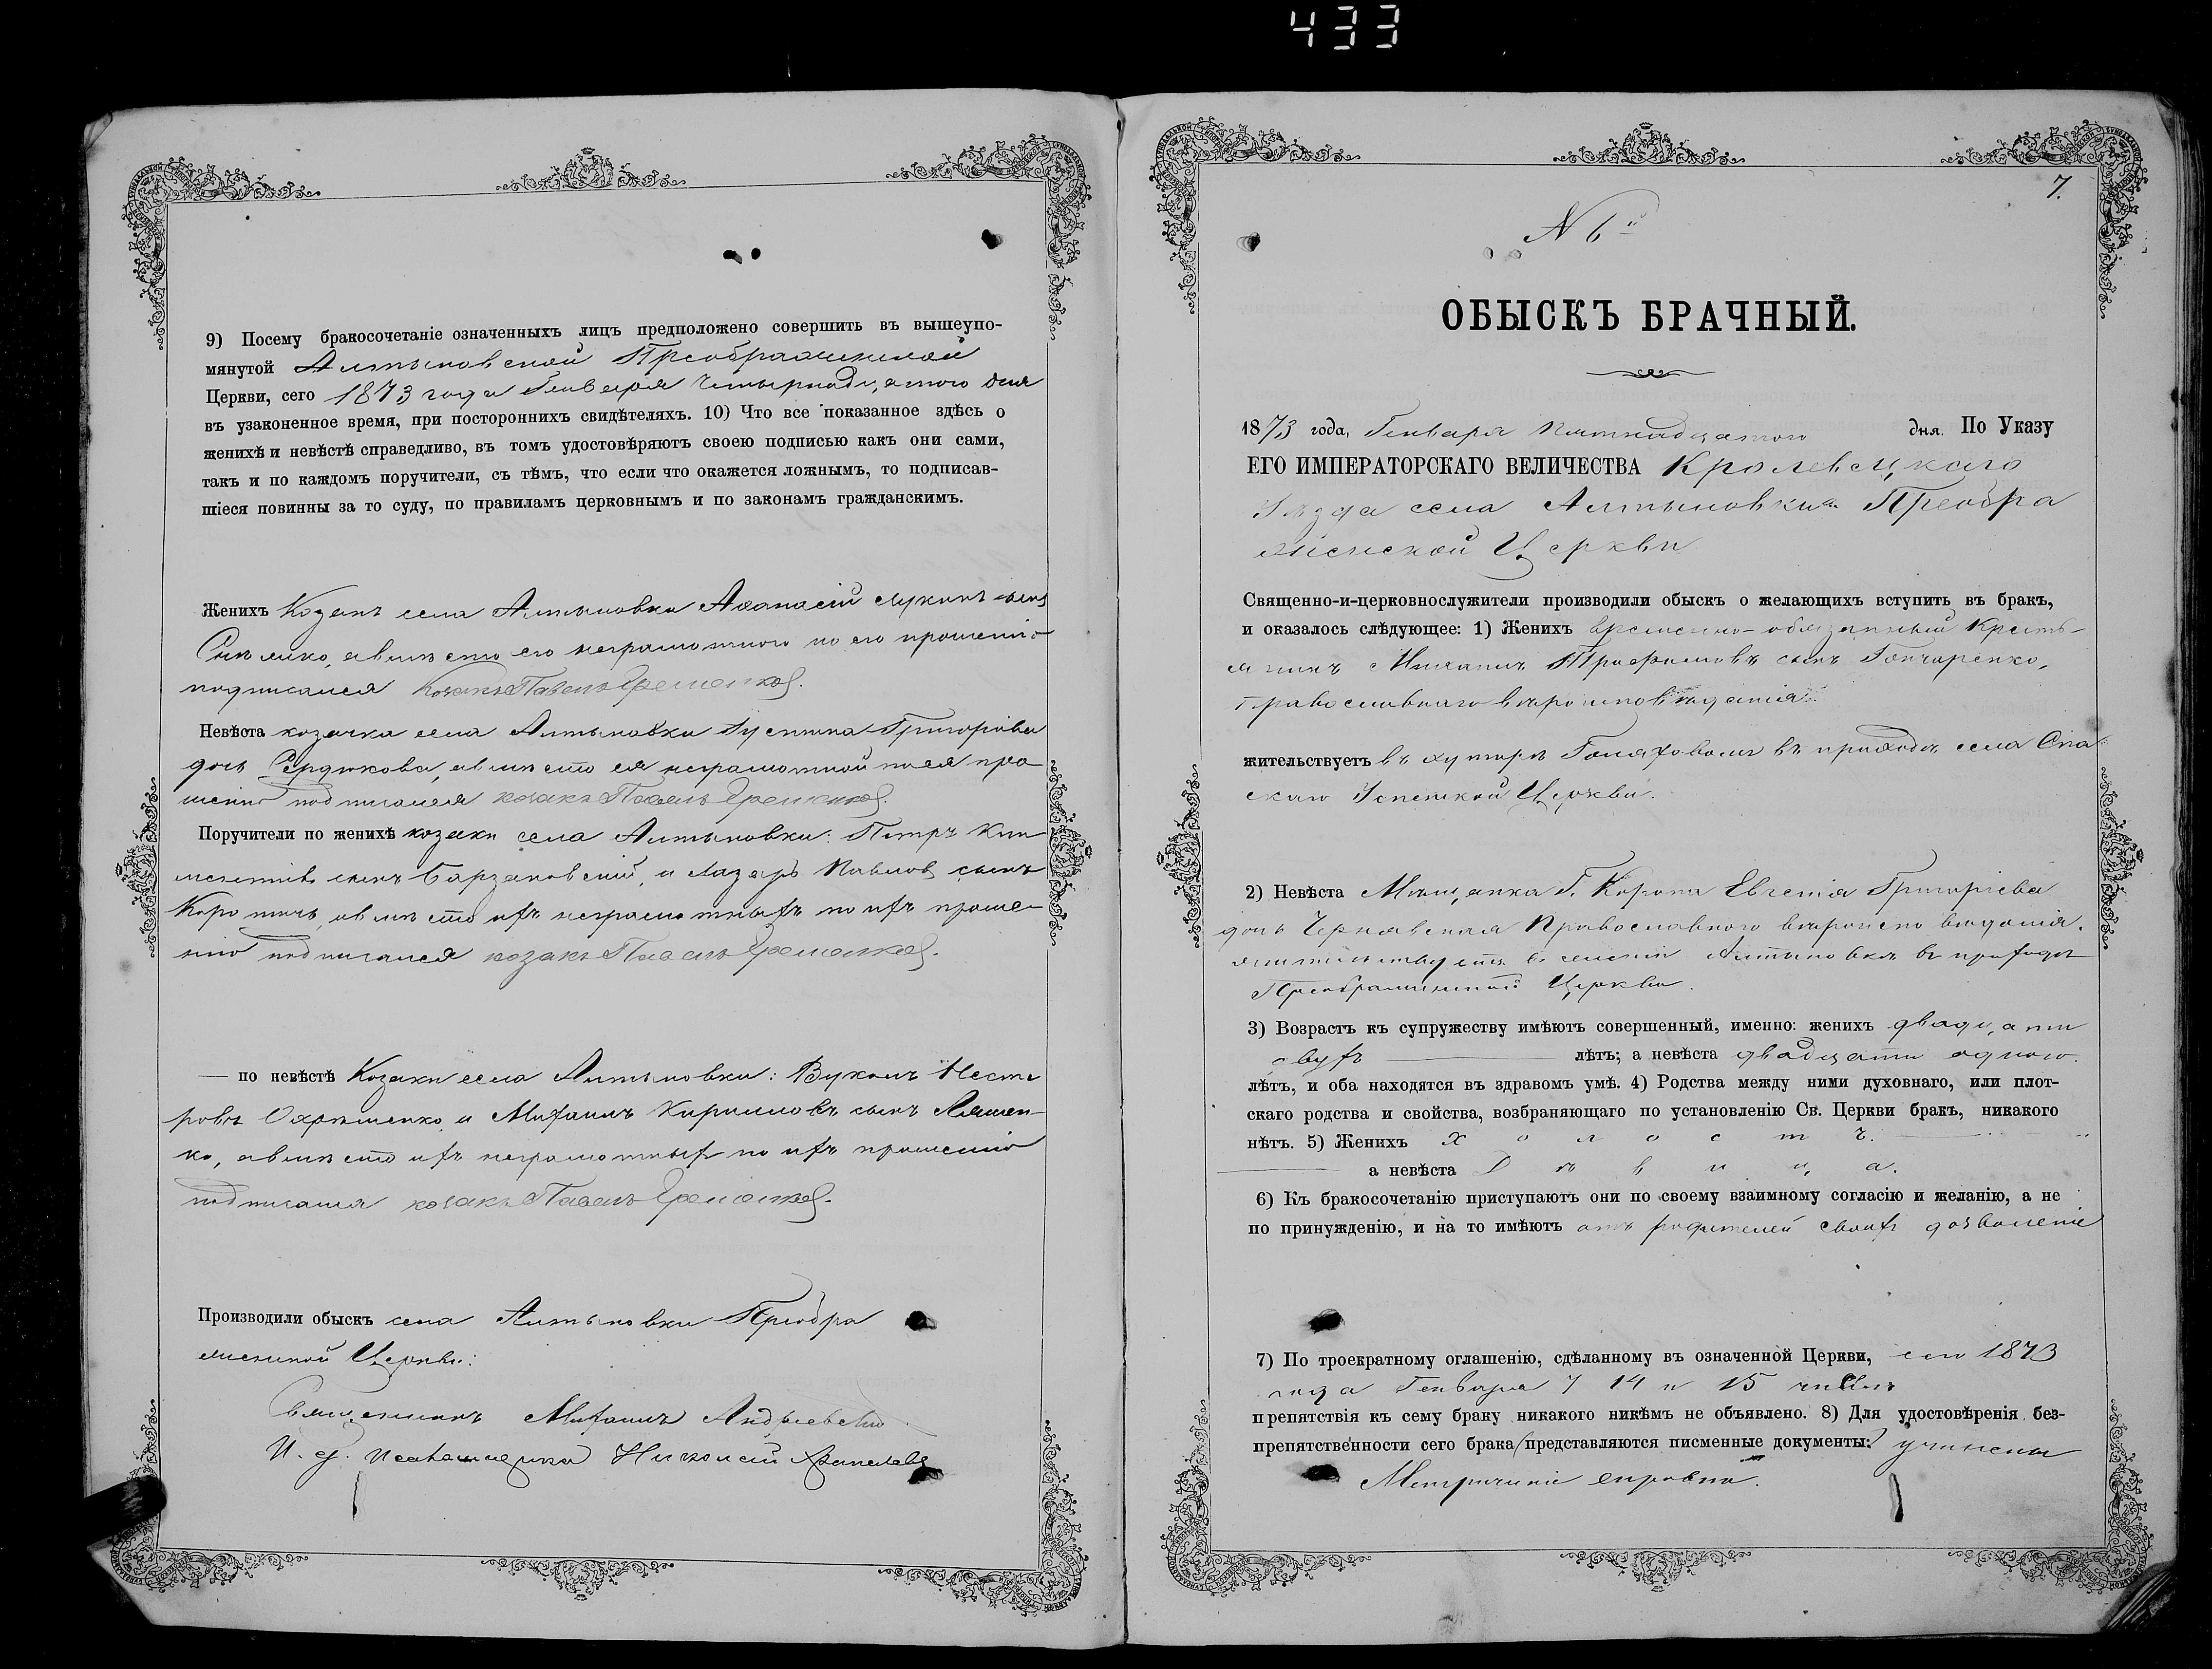 433
9) Посему бракосочетаніе означенныхъ лицъ предположено совершить въ вышеупо-
мянутой Алтыновской Преображенской
Церкви, сего 1873 года Генваря четырнадцатого дня
въ узаконенное время, при постороннихъ свидѣтеляхъ. 10) Что все показанное здѣсь о
женихѣ и невѣстѣ справедливо, въ томъ удостовѣряютъ своею подписью какъ они сами,
такъ и по каждомъ поручители, съ тѣмъ, что если что окажется ложнымъ, то подписав-
шіеся повинны за то суду, по правиламъ церковнымъ и по законамъ гражданскимъ.
Женихъ Козакъ села Алтыновки Афанасій Лукинъ сынъ
а вмѣсто его неграмотного по его прошенію
подписался козакъ Павелъ
Невѣста козачка села Алтыновки Іустина Григоріева
дочь Сердюкова, а вмѣсто ея неграмотной по ея про
шенію подписался козакъ Павелъ
Поручители по женихѣ козаки села Алтыновки: Петръ Кли
ментіевъ сынъ Барзаковскій, и Лазарь Павловъ сынъ
а вмѣсто ихъ неграмотныхъ по ихъ проше-
нію подписался козакъ Павелъ
— по невѣстѣ Козаки села Алтыновки: Вуколъ Несте
ровъ и Михаилъ Кирилловъ сынъ Ляшен-
ко, а вмѣсто ихъ неграмотныхъ по ихъ прошенію
подписался козакъ Павелъ
Производили обыскъ села Алтыновки Преобра
женской Церкви:
Священникъ Михаилъ Андріевскій
И. д. псаломщика Николай
7.
N 6й
ОБЫСКЪ БРАЧНЫЙ.
1873 года, Генваря пятнадцатого дня. По Указу
ЕГО ИМПЕРАТОРСКАГО ВЕЛИЧЕСТВА Кролевецкаго
Уѣзда села Алтыновки Преобра
женской Церкви
Священно-и-церковнослужители производили обыскъ о желающихъ вступить въ бракъ,
и оказалось слѣдующее: 1) Женихъ временно-обязанный Кресть-
янинъ Михаилъ Трофимовъ сынъ Гончаренко,
православнаго вѣроисповѣданія.
жительствуетъ въ хуторѣ въ приходѣ села Спа
скаго Успенской Церкви.
2) Невѣста Мѣщанка Г. Коропа Евгенія Григоріева
дочь Чернявская Православного вѣроисповѣданія.
жительствуетъ въ селеніи Алтыновкѣ въ приходѣ
Преображенской Церкви.
3) Возрастъ къ супружеству имѣютъ совершенный, именно: женихъ двадцати
двухъ лѣтъ; а невѣста двадцати одного
лѣтъ, и оба находятся въ здравомъ умѣ. 4) Родства между ними духовнаго, или плот-
скаго родства и свойства, возбраняющаго по установленію Св. Церкви бракъ, никакого
нѣтъ. 5) Женихъ холостъ.
а невѣста Дѣвица.
6) Къ бракосочетанію приступаютъ они по своему взаимному согласію и желанію, а не
по принужденію, и на то имѣютъ отъ родителей своихъ дозволеніе
7) По троекратному оглашенію, сдѣланному въ означенной Церкви, сего 1873
года Генваря 7 14 и 15 чиселъ
препятствія къ сему браку никакого никѣмъ не объявлено. 8) Для удостовѣренія без-
препятственности сего брака представляются писменные документы: учинены
Метричніе справки.